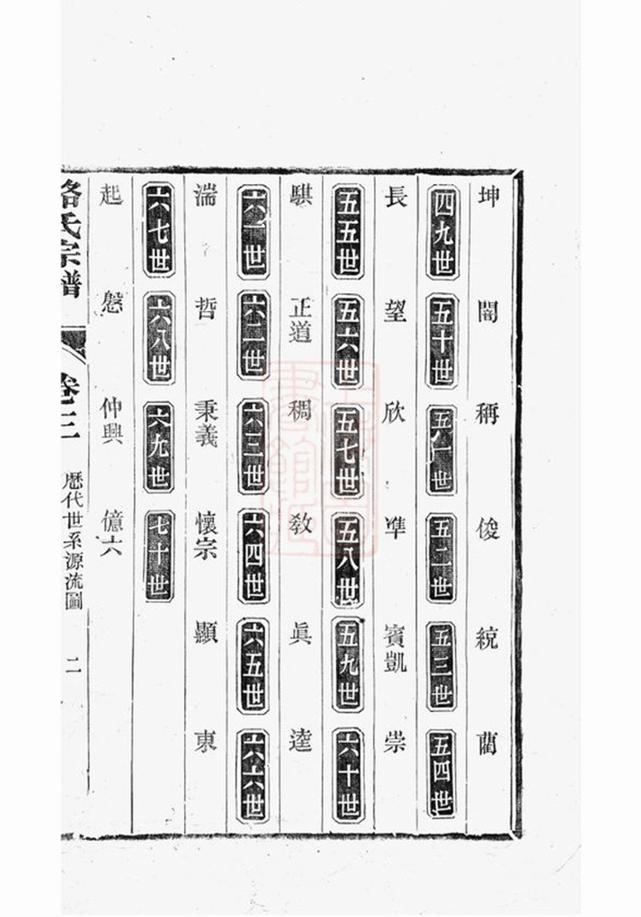 坤 闇 稱 俊 統 藺
四九世 五十世 五一世 五二世 五三世 五四世
長 望 欣 準 賓凱 崇
五五世 五六世 五七世 五八世 五九世 六十世
騏 正道 稠 敎 眞 逵
六一世 六二世 六三世 六四世 六五世 六六世
湍 哲 秉義 懷宗 顯 東
六七世 六八世 六九世 七十世
起 慇 仲興 億六
駱氏宗譜 卷二 歷代世系源流圖 二